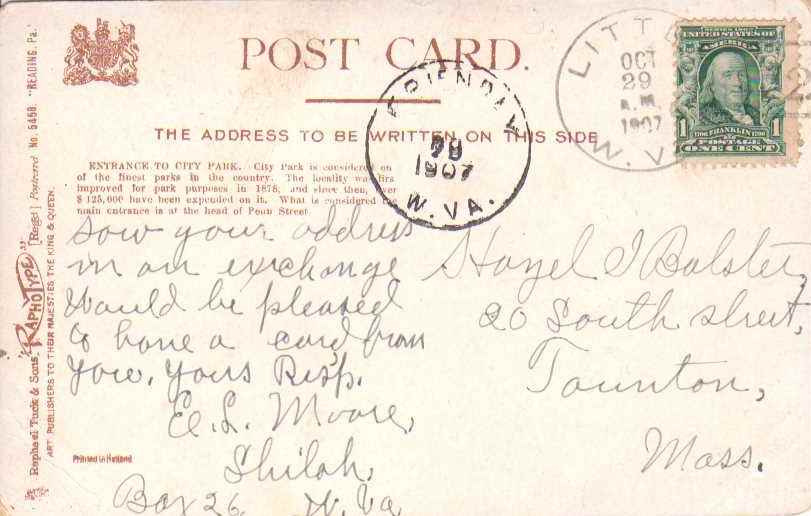 POST CARD.
THE ADDRESS TO BE WRITTEN ON THIS SIDE
ENTRANCE TO CITY PARK. City Park is considered on
of the finest parks in the country. The locality was firs
improved for park purposes in 1878, and since then, over
$125,000 have been expended on it. What is considered the
main entrance is at the head of Penn Street
Raphael Tuck & Sons' "RAPHOTYPE" [Regd] Postcard No. 5458. "READING, Pa."
ART PUBLISHERS TO THEIR MAJESTIES THE KING & QUEEN.
Printed in Holland
FRIENDLY
1907
W. VA.
LITT
OCT
29
A.M.
1907
W. VA
SERIES 1902
UNITED STATES OF
AMERICA
1 1706 FRANKLIN 1790 1
POSTAGE
ONE CENT
saw your address
in an exchange
Would be pleased
to have a card from
you. Yours Resp.
E. L. Moore,
Shiloh,
Box 26 W. Va
Hazel I Bolster,
20 South street,
Taunton,
Mass.